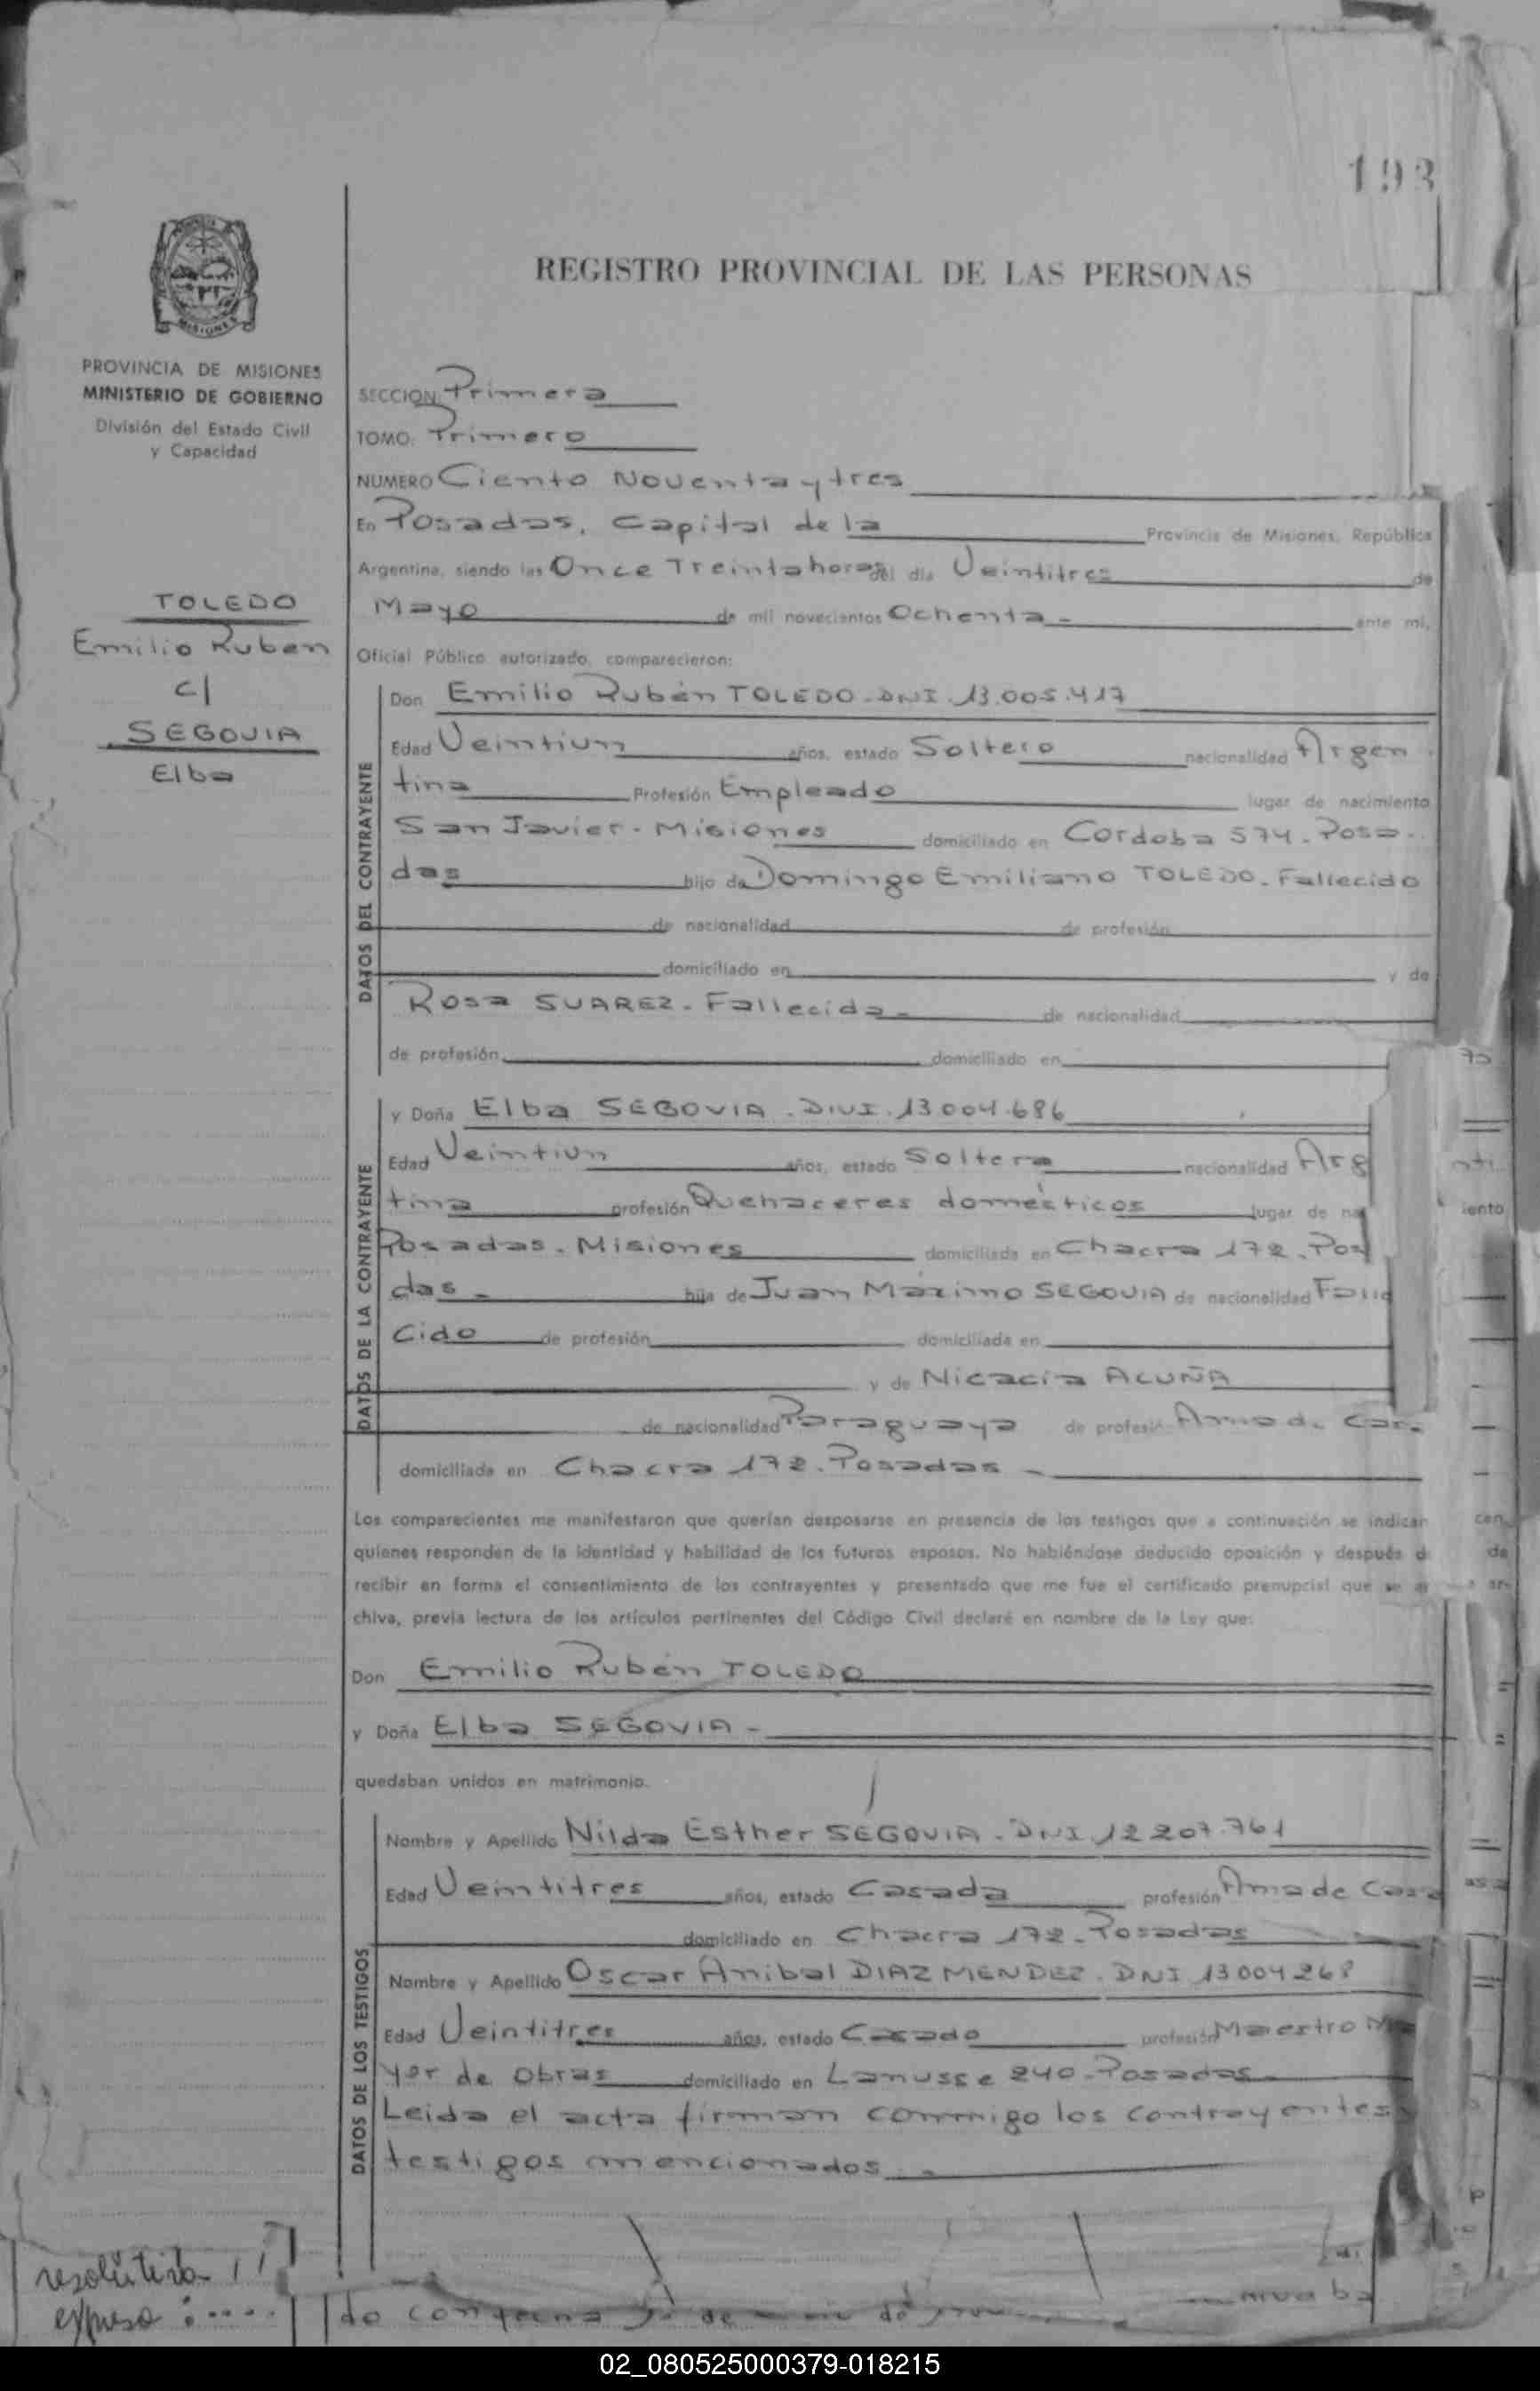 193
REGISTRO PROVINCIAL DE LAS PERSONAS
MISIONES
PROVINCIA DE MISIONES
MINISTERIO DE GOBIERNO
División del Estado Civil
y Capacidad
TOLEDO
Emilio Ruben
c/
SEGOVIA
Elba
SECCION: Primera
TOMO: Primero
NUMERO Ciento Noventa y tres
En Posadas, Capital de la Provincia de Misiones, República
Argentina, siendo las Once Treinta horas del día Veintitres de
Mayo de mil novecientos Ochenta - ante mi,
Oficial Público autorizado, comparecieron:
DATOS DEL CONTRAYENTE
Don Emilio Rubén TOLEDO - DNI. 13.005.417
Edad Veintiun años, estado Soltero nacionalidad Argen
tina Profesión Empleado lugar de nacimiento
San Javier - Misiones domiciliado en Cordoba 574 - Posa-
das hijo de Domingo Emiliano TOLEDO - Fallecido
de nacionalidad de profesión
domiciliado en y de
Rosa SUAREZ - Fallecida - de nacionalidad
de profesión domiciliado en
DATOS DE LA CONTRAYENTE
y Doña Elba SEGOVIA - DNI. 13.004.686
Edad Veintiun años, estado Soltera nacionalidad Arg
tina profesión Quehaceres domésticos lugar de na iento
Posadas - Misiones domiciliada en Chacra 172 - Pos
das - hija de Juan Máximo SEGOVIA de nacionalidad Falle
cido de profesión domiciliada en
y de Nicacia ACUÑA
de nacionalidad Paraguaya de profesión Ama de Casa
domiciliada en Chacra 172 - Posadas -
Los comparecientes me manifestaron que querían desposarse en presencia de los testigos que a continuación se indican
quienes responden de la identidad y habilidad de los futuros esposos. No habiéndose deducido oposición y después de
recibir en forma el consentimiento de los contrayentes y presentado que me fue el certificado prenupcial que se ar-
chiva, previa lectura de los artículos pertinentes del Código Civil declaré en nombre de la Ley que:
Don Emilio Rubén TOLEDO
y Doña Elba SEGOVIA -
quedaban unidos en matrimonio.
DATOS DE LOS TESTIGOS
Nombre y Apellido Nilda Esther SEGOVIA - DNI. 12.207.761
Edad Veintitres años, estado Casada profesión Ama de Casa
domiciliado en Chacra 172 - Posadas
Nombre y Apellido Oscar Anibal DIAZ MENDEZ - DNI 13004268
Edad Veintitres años, estado Casado profesión Maestro Ma
yor de Obras domiciliado en Lanusse 240 - Posadas
Leida el acta firman conmigo los contrayentes
testigos mencionados. -
resolutiva
expresa :....
do de
02_080525000379-018215